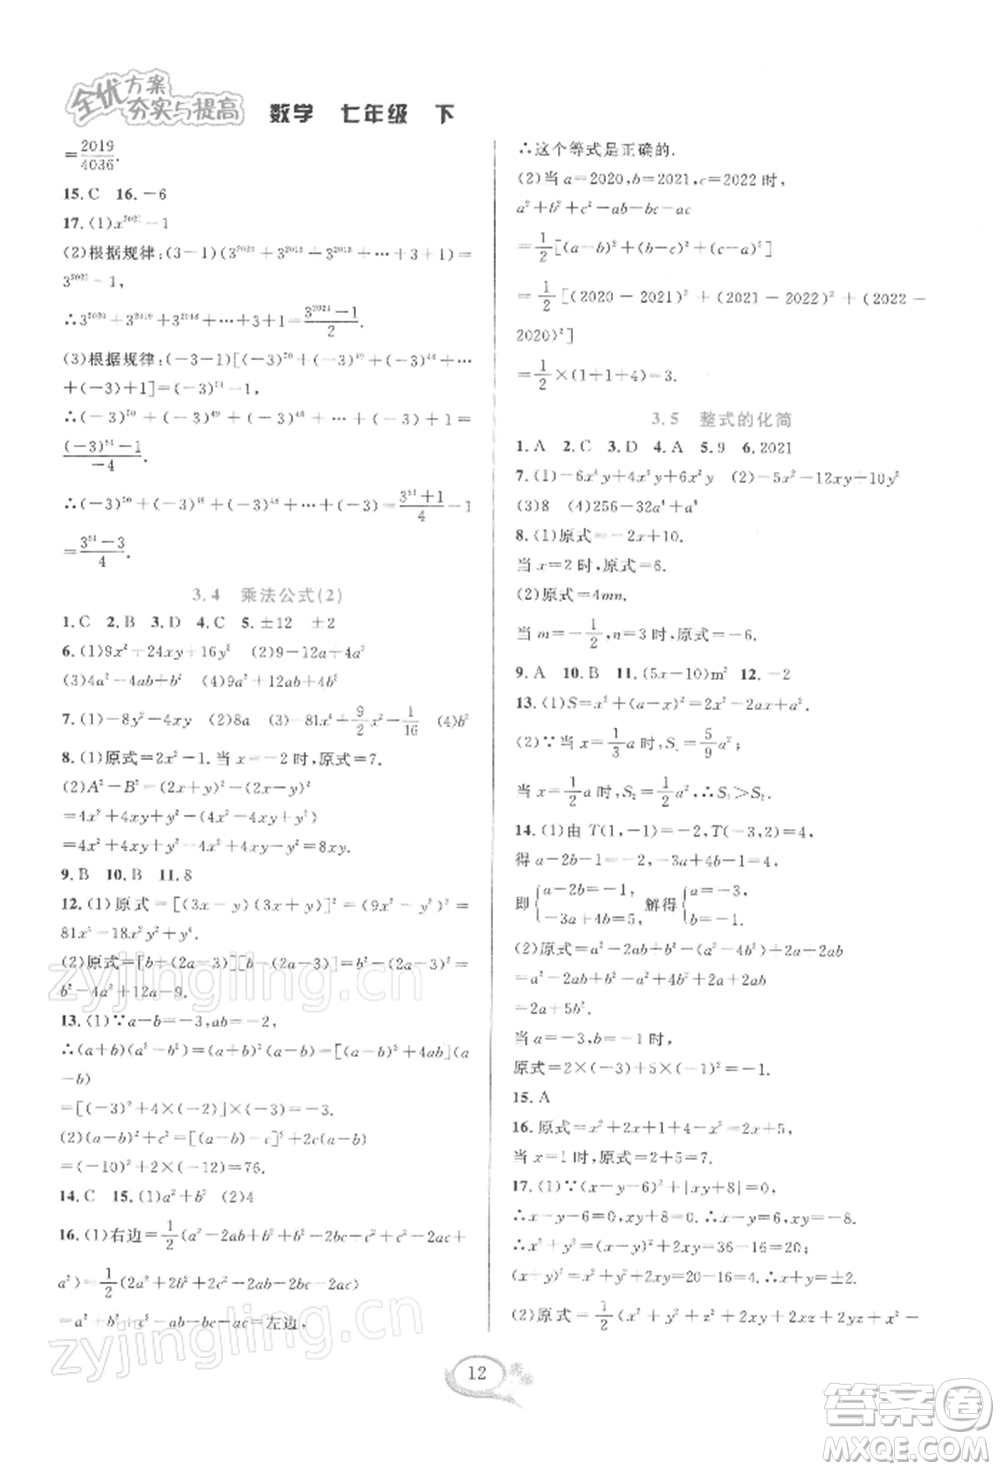 全优方案
夯实与提高 数学 七年级 下
=2019/4036.
15.C 16.-6
17.(1)x^2021-1
(2)根据规律:(3-1)(3^2020+3^2019+3^2018+…+3+1)=
3^2021-1,
∴3^2020+3^2019+3^2018+…+3+1=(3^2021-1)/2.
(3)根据规律:(-3-1)[(-3)^50+(-3)^49+(-3)^48+…
+(-3)+1]=(-3)^51-1,
∴(-3)^50+(-3)^49+(-3)^48+…+(-3)+1=
((-3)^51-1)/-4.
∴(-3)^50+(-3)^49+(-3)^48+…+(-3)=(3^51+1)/4-1
=(3^51-3)/4.
3.4 乘法公式(2)
1.C 2.B 3.D 4.C 5.±12 ±2
6.(1)9x²+24xy+16y² (2)9-12a+4a²
(3)4a²-4ab+b² (4)9a²+12ab+4b²
7.(1)-8y²-4xy (2)8a (3)-81x⁴+9/2x²-1/16 (4)b²
8.(1)原式=2x²-1.当x=2时,原式=7.
(2)A²-B²=(2x+y)²-(2x-y)²
=4x²+4xy+y²-(4x²-4xy+y²)
=4x²+4xy+y²-4x²+4xy-y²=8xy.
9.B 10.B 11.8
12.(1)原式=[(3x-y)(3x+y)]²=(9x²-y²)²=
81x⁴-18x²y²+y⁴.
(2)原式=[b+(2a-3)][b-(2a-3)]=b²-(2a-3)²=
b²-4a²+12a-9.
13.(1)∵a-b=-3,ab=-2,
∴(a+b)(a²-b²)=(a+b)²(a-b)=[(a-b)²+4ab](a
-b)
=[(-3)²+4×(-2)]×(-3)=-3.
(2)(a-b)²+c²=[(a-b)-c]²+2(a-b)c
=(-10)²+2×(-12)=76.
14.C 15.(1)a²+b² (2)4
16.(1)右边=1/2(a²-2ab+b²+b²-2bc+c²+c²-2ac+
a²)=1/2(2a²+2b²+2c²-2ab-2bc-2ac)
=a²+b²+c²-ab-bc-ac=左边,
∴这个等式是正确的.
(2)当a=2020,b=2021,c=2022时,
a²+b²+c²-ab-bc-ac
=1/2[(a-b)²+(b-c)²+(c-a)²]
=1/2[(2020-2021)²+(2021-2022)²+(2022-
2020)²]
=1/2×(1+1+4)=3.
3.5 整式的化简
1.A 2.C 3.D 4.A 5.9 6.2021
7.(1)-6x⁴y+4x³y+6x²y (2)-5x²-12xy-10y²
(3)8 (4)256-32a⁴+a⁸
8.(1)原式=-2x+10.
当x=2时,原式=6.
(2)原式=4mn.
当m=-1/2,n=3时,原式=-6.
9.A 10.B 11.(5x-10)m² 12.-2
13.(1)S=x²+(a-x)²=2x²-2ax+a².
(2)∵当x=1/3a时,S₁=5/9a²;
当x=1/2a时,S₂=1/2a²,∴S₁>S₂.
14.(1)由T(1,-1)=-2,T(-3,2)=4,
得a-2b-1=-2,-3a+4b-1=4,
即{a-2b=-1,-3a+4b=5, 解得{a=-3,b=-1.
(2)原式=a²-2ab+b²-(a²-4b²)+2a+2ab
=a²-2ab+b²-a²+4b²+2a+2ab
=2a+5b².
当a=-3,b=-1时,
原式=2×(-3)+5×(-1)²=-1.
15.A
16.原式=x²+2x+1+4-x²=2x+5.
当x=1时,原式=2+5=7.
17.(1)∵(x-y-6)²+|xy+8|=0,
∴x-y-6=0,xy+8=0,∴x-y=6,xy=-8.
∴x²+y²=(x-y)²+2xy=36-16=20;
(x+y)²=x²+y²+2xy=20-16=4,∴x+y=±2.
(2)原式=1/2(x²+y²+z²+2xy+2xz+2yz+x²-
12
zyjingling.cn
zyjingling.cn
答案圈
MXQE.COM